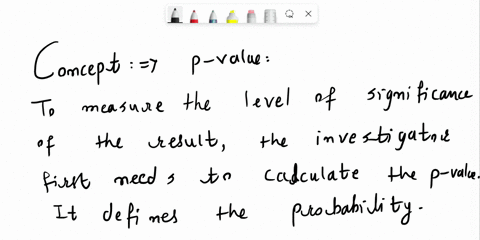 Concept :=> p-value:
To measure the level of significance
of the result, the investigator
first needs to calculate the p-value.
It defines the probability.